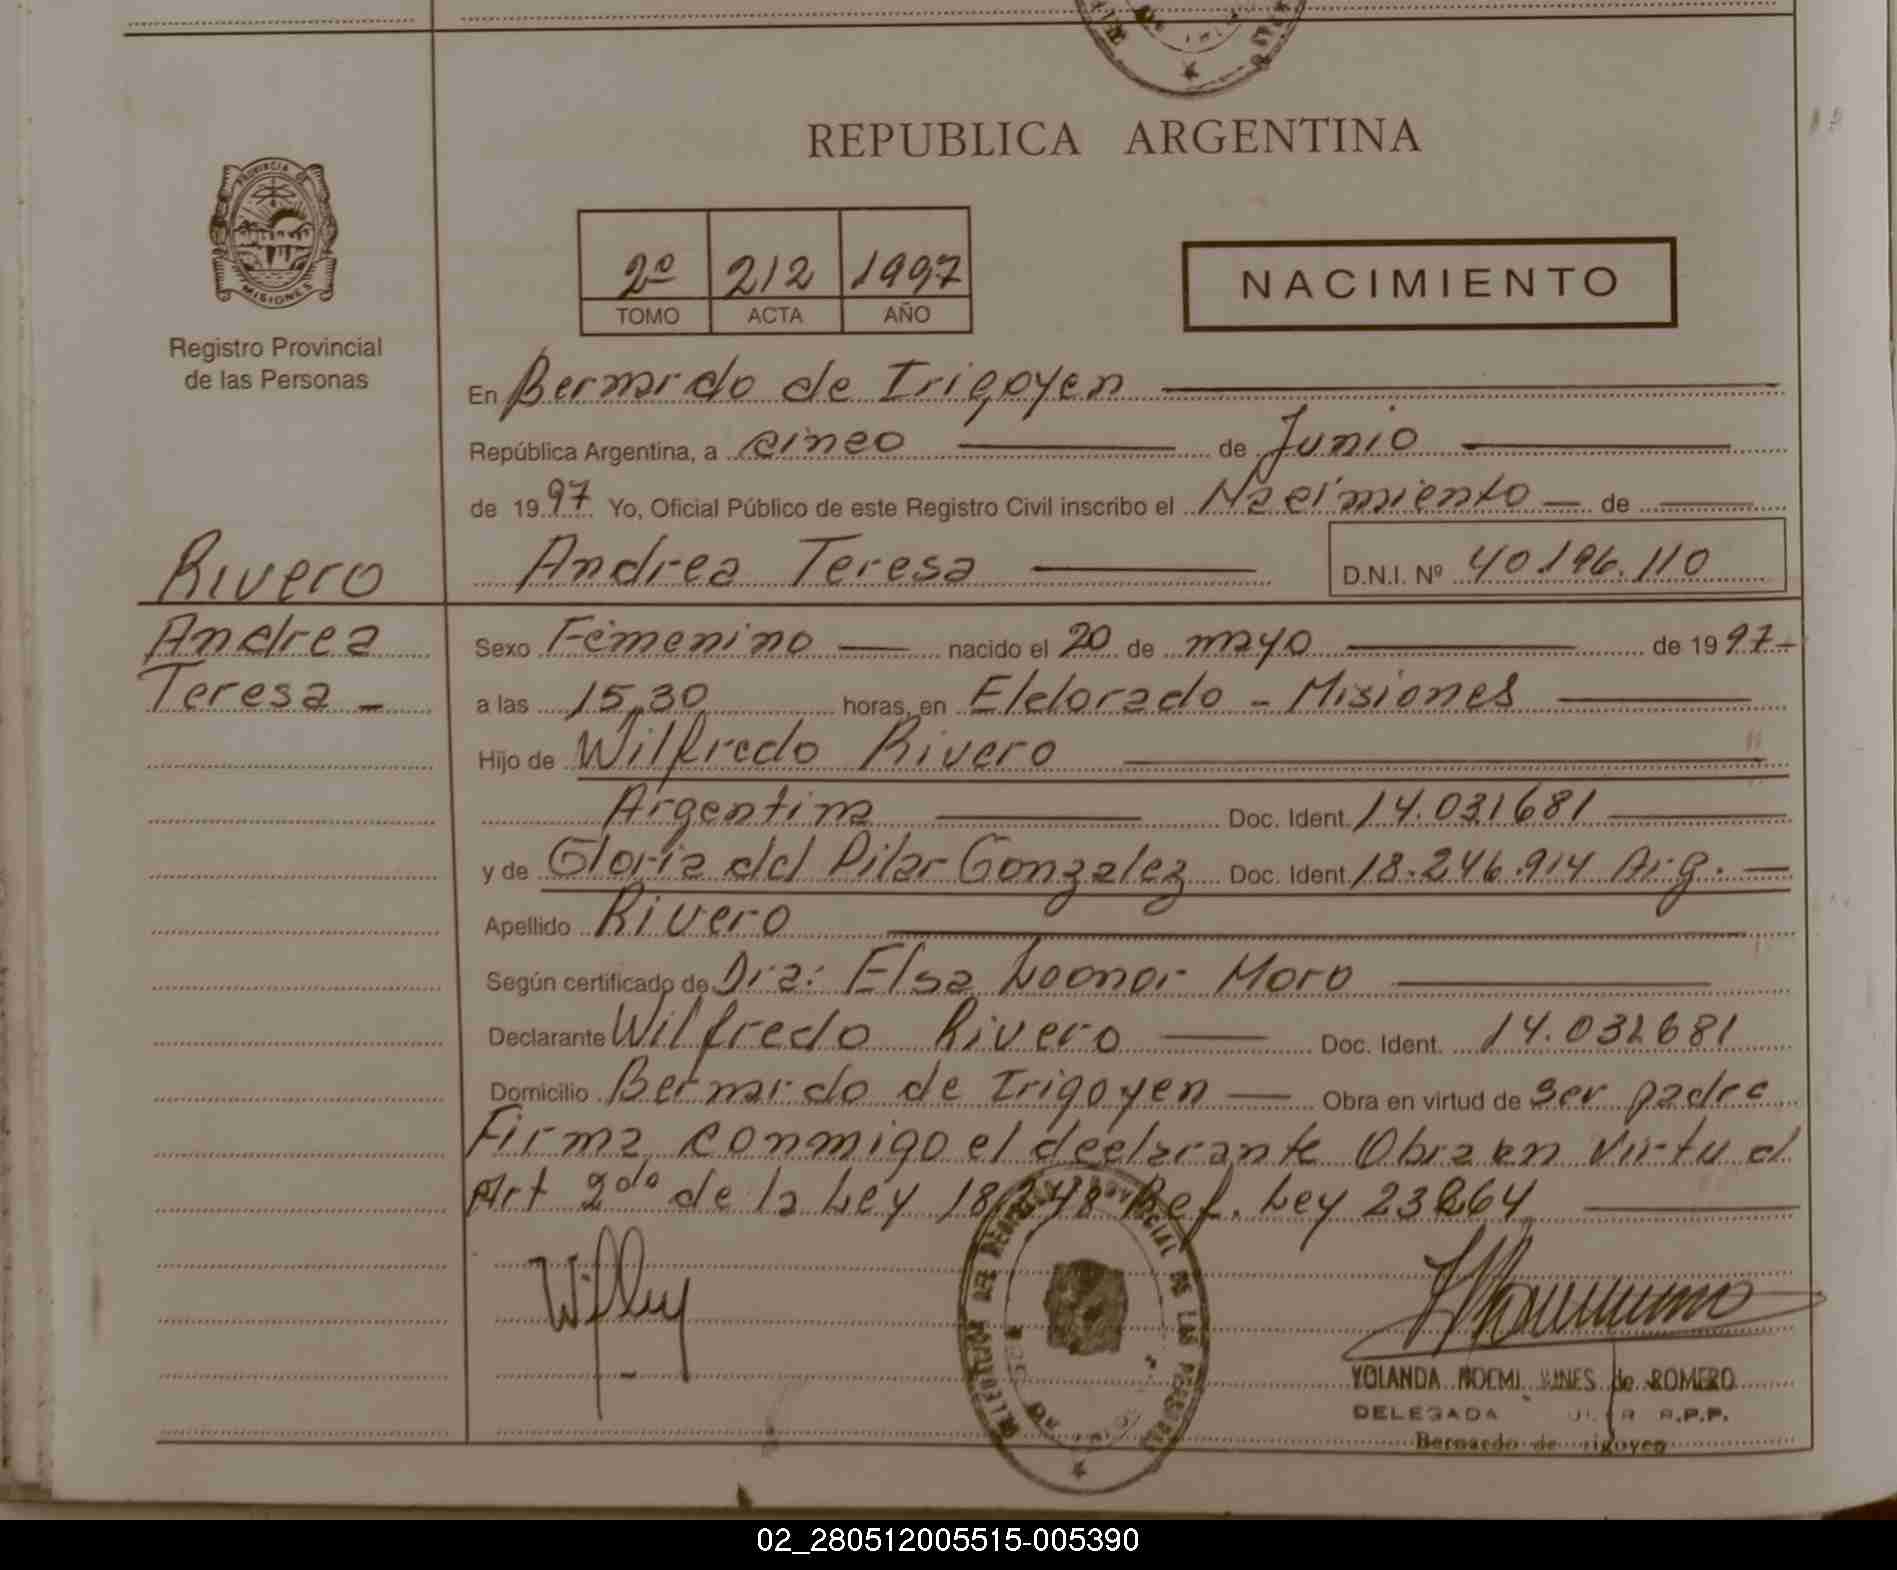 REPUBLICA ARGENTINA
PROVINCIA DE
MISIONES
Registro Provincial
de las Personas
2º 212 1997
TOMO ACTA AÑO
NACIMIENTO
En Bernardo de Irigoyen
República Argentina, a cinco de Junio
de 1997 Yo, Oficial Público de este Registro Civil inscribo el Nacimiento de
Andrea Teresa D.N.I. Nº 40.196.110
Rivero
Andrea
Teresa
Sexo Femenino nacido el 20 de mayo de 1997
a las 15,30 horas, en Eldorado - Misiones
Hijo de Wilfredo Rivero
Argentina Doc. Ident. 14.031681
y de Gloria del Pilar Gonzalez Doc. Ident. 18.246.914 Arg.
Apellido Rivero
Según certificado de Dra: Elsa Leonor Moro
Declarante Wilfredo Rivero Doc. Ident. 14.031681
Domicilio Bernardo de Irigoyen Obra en virtud de ser padre
Firma conmigo el declarante Obra en Virtud
Art 2do de la Ley 18.248 Ref. Ley 23264
YOLANDA NOEMI de ROMERO
DELEGADA R.P.P.
Bernardo de Irigoyen
02_280512005515-005390